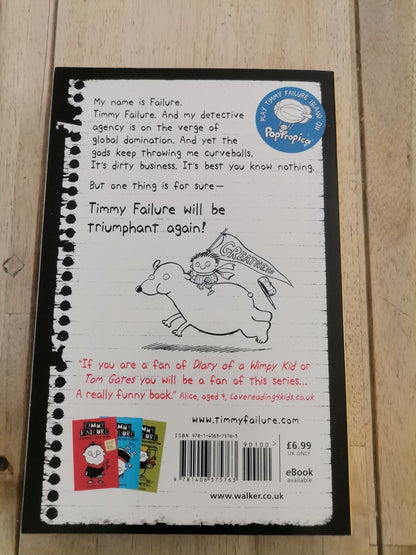 My name is Failure.
Timmy Failure. And my detective
agency is on the verge of
global domination. And yet the
gods keep throwing me curveballs.
It's dirty business. It's best you know nothing.
But one thing is for sure—
Timmy Failure will be
triumphant again!
PLAY TIMMY FAILURE ISLAND ON
POPTROPICA
GREATNESS
"If you are a fan of Diary of a Wimpy Kid or
Tom Gates you will be a fan of this series...
A really funny book." Alice, aged 9, Lovereading4kids.co.uk
www.timmyfailure.com
TIMMY
FAILURE
TIMMY
FAILURE
TIMMY
FAILURE
ISBN 978-1-4063-7576-3
90100 >
9 781406 375763
£6.99
UK ONLY
eBook
available
www.walker.co.uk